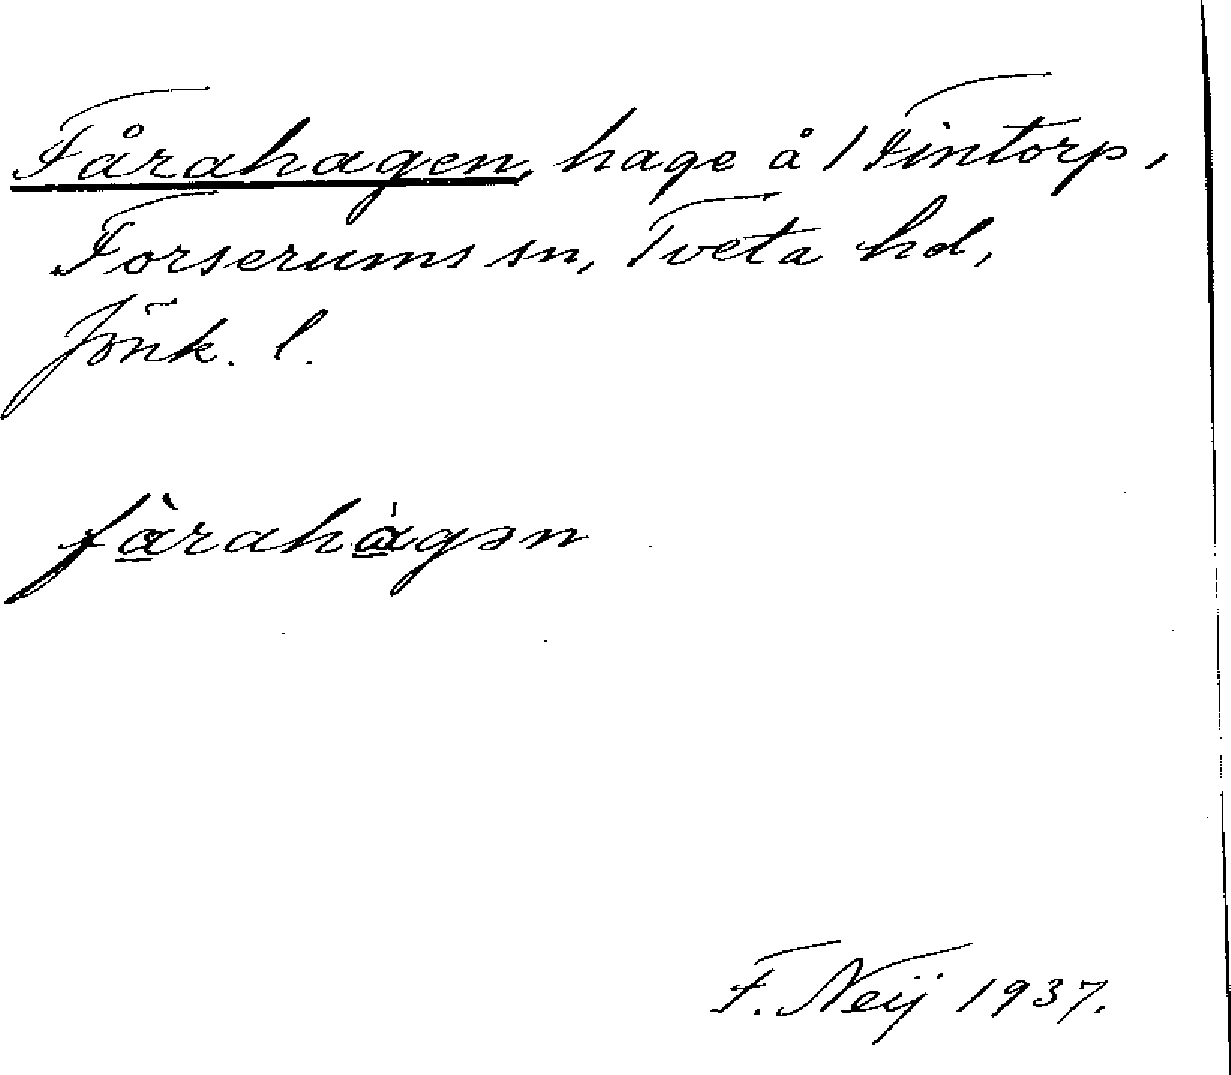 Fårahagen, hage å 1 Fintorp,
Forserums sn, Tveta hd,
Jönk. l.
fàrahágən
F. Neij 1937.